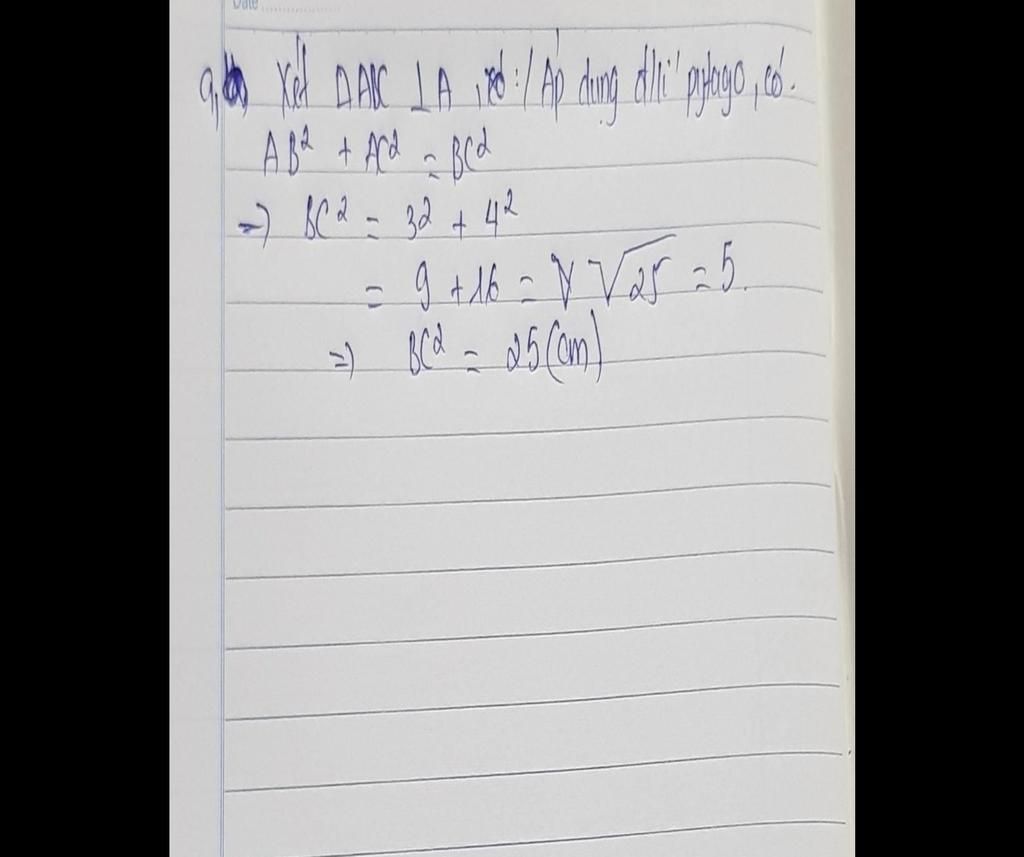 Date
a, Xét ΔABC ⊥ A, có :/ Áp dụng đ/lí pytago, có.
AB² + AC² = BC²
=> BC² = 3² + 4²
= 9 + 16 = √25 = 5.
=> BC² = 25 (cm)